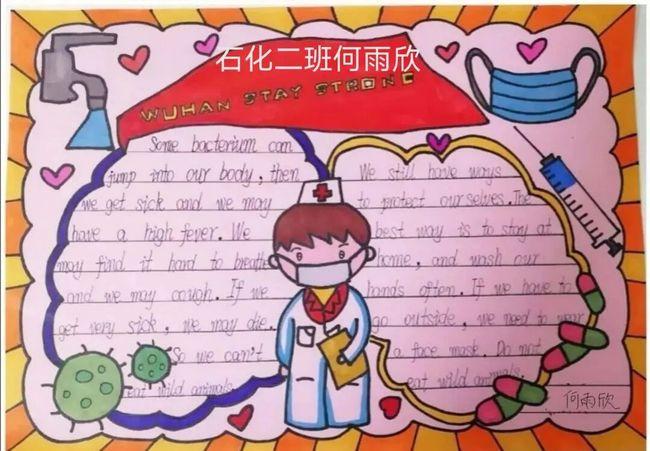 石化二班何雨欣
WUHAN STAY STRONG
Some bacterium can
jump into our body, then
we get sick and we may
have a high fever. We
may find it hard to breathe
and we may cough. If we
get very sick, we may die.
So we can't
eat wild animals.
We still have ways
to protect ourselves. The
best way is to stay at
home, and wash our
hands often. If we have to
go outside, we need to wear
a face mask. Do not
eat wild animals.
何雨欣